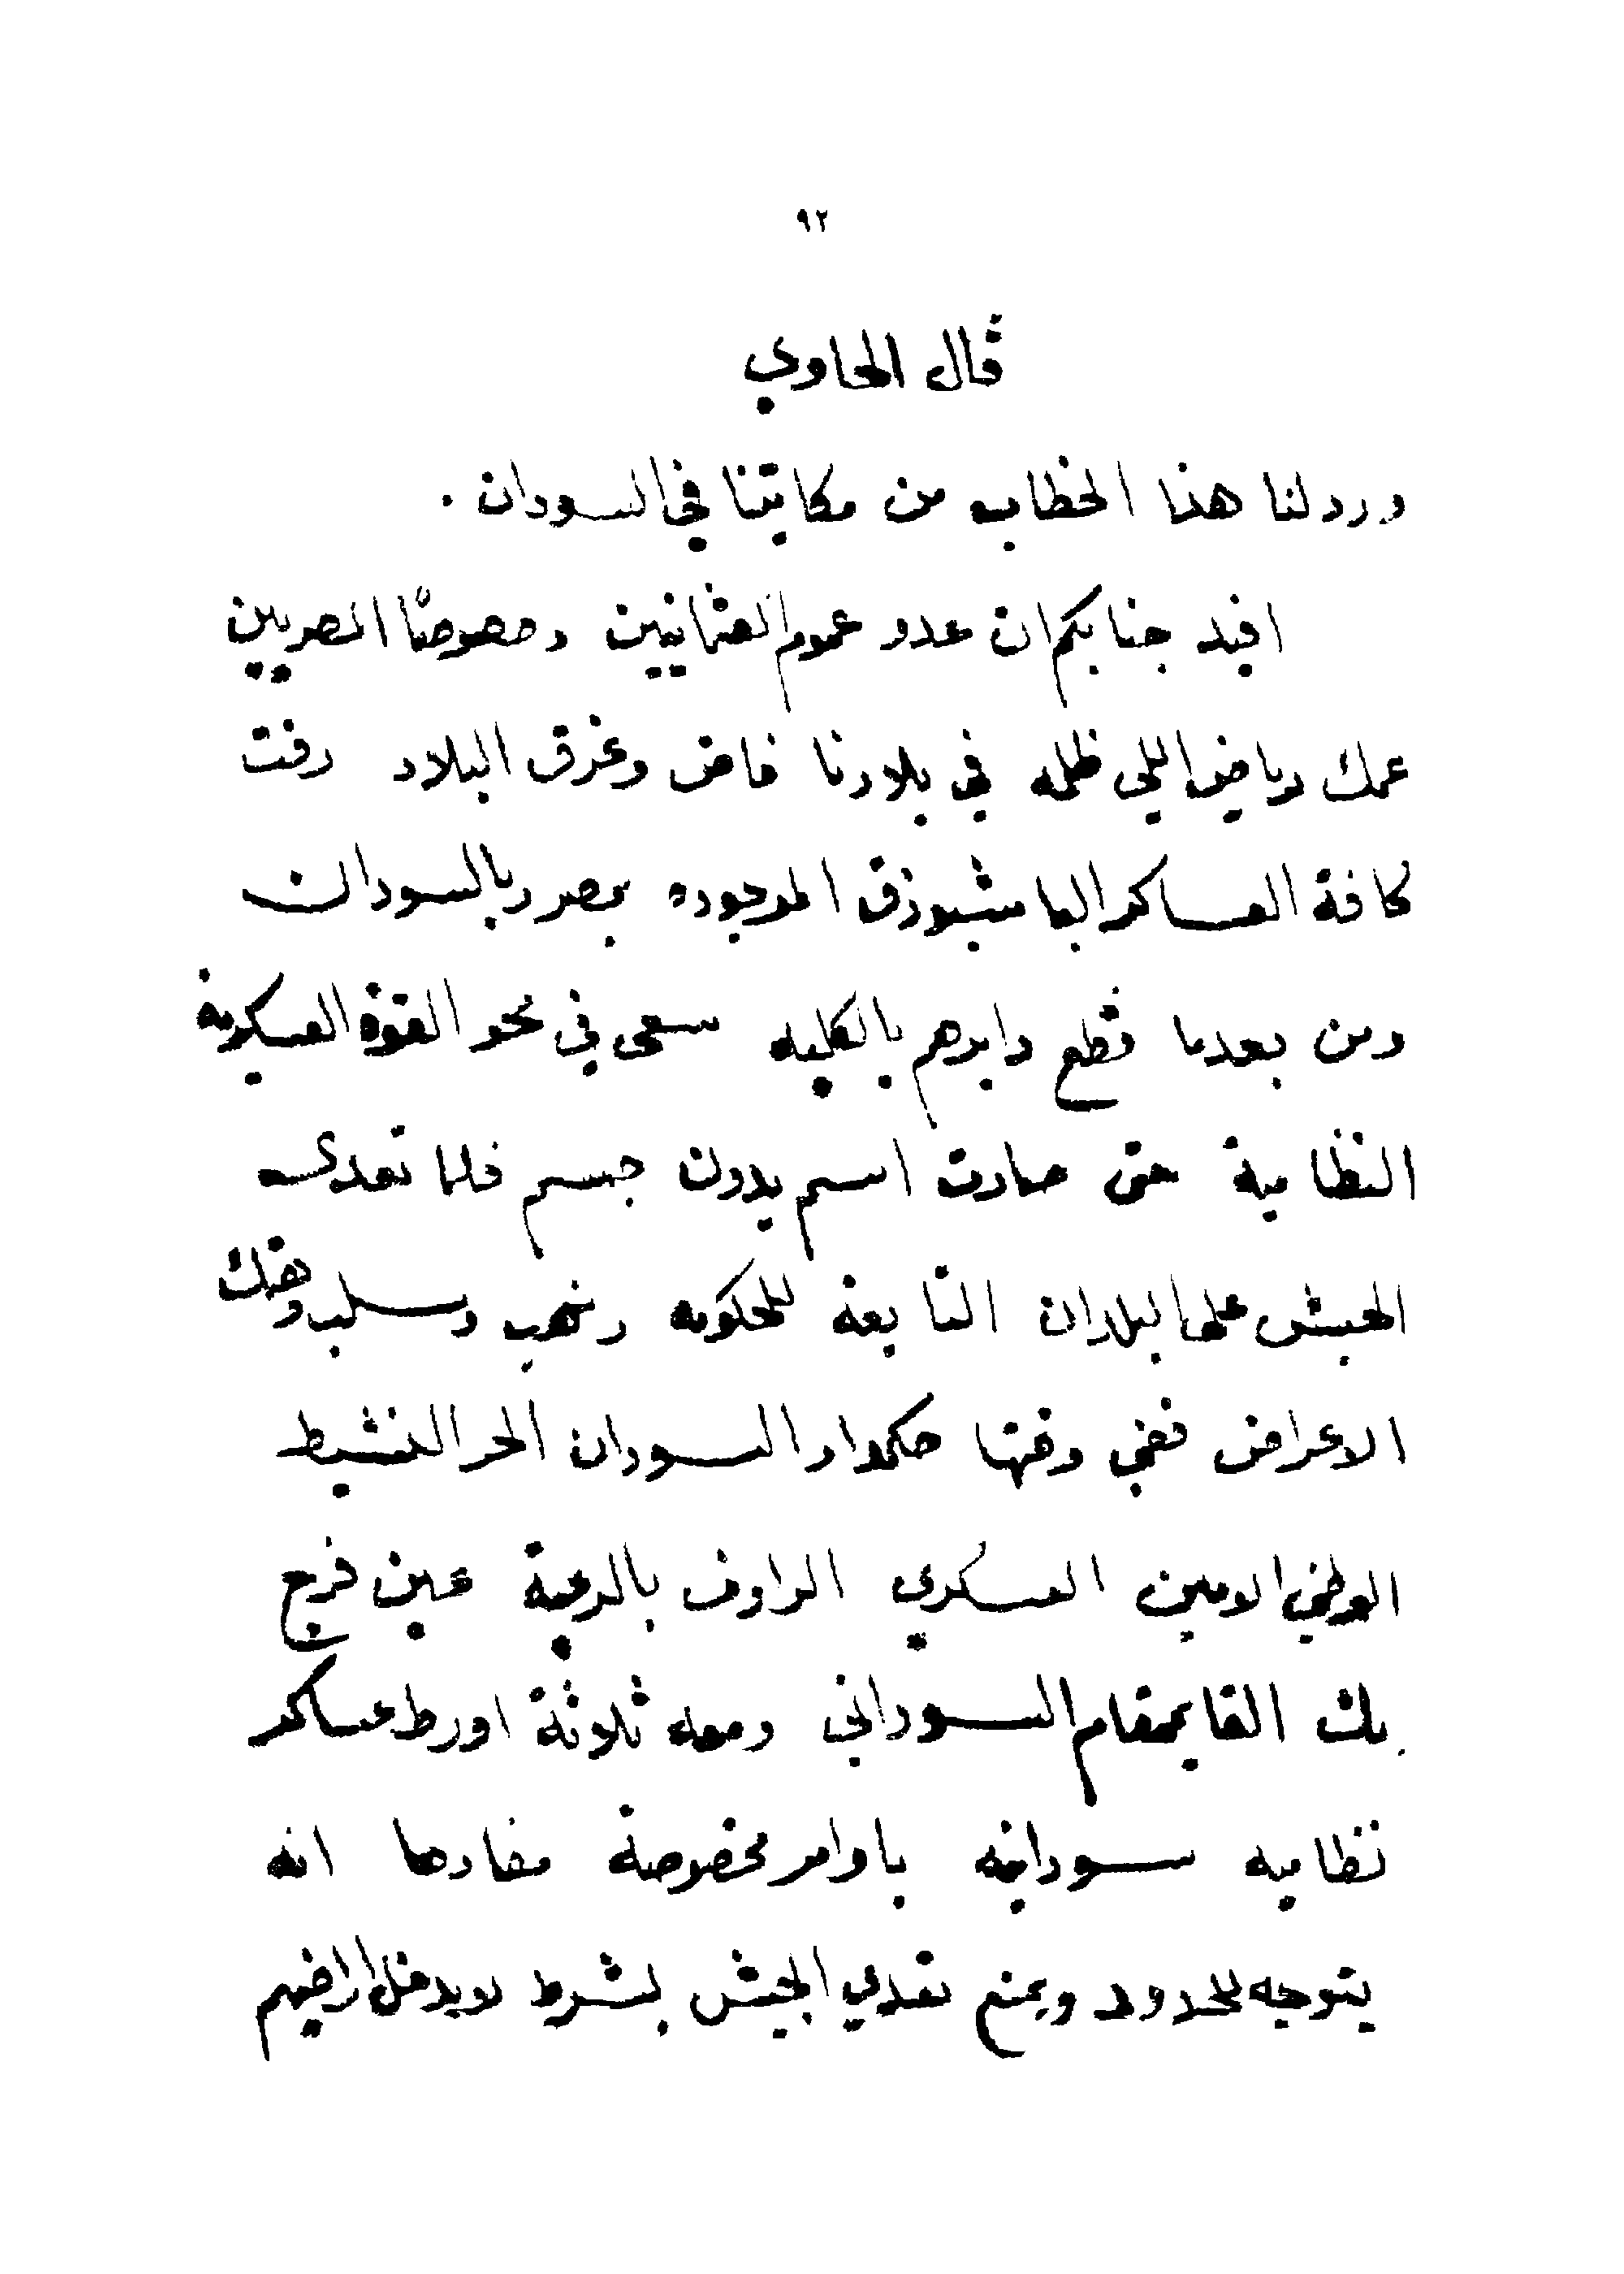 ٩٢
قال الحاوي
ورد لنا هذا الخطاب من مكاتبنا في السودان .
افيد جنابكم ان عدو عموم العثمانيين وخصوصًا المصريين
عمك رياض اللي ظلمه في بلادنا فاض وغرق البلاد رفت
كافة العساكر الباشبوزق الموجوده بمصر وبالسودان
ومن بعدما قطع دابرهم بالكليه سعى في محو القوة العسكرية
النظامية حتى صارت اسم بدون جسم فلما تعدى
الحبش على البلدان التابعة للحكومه ونهب وسلب وهتك
الاعراض ففي وقتها حكمدار السودان الحر النشيط
الوطني الامين العسكري الراوف بالرعية عين فرج
بك القايمقام السوداني ومعه ثلاثة اورط عساكر
نظاميه سودانيه باوامر مخصوصة مفادها انه
يتوجه للحدود ويمنع تعدي الحبش بشرط لا يدخل اراضيهم